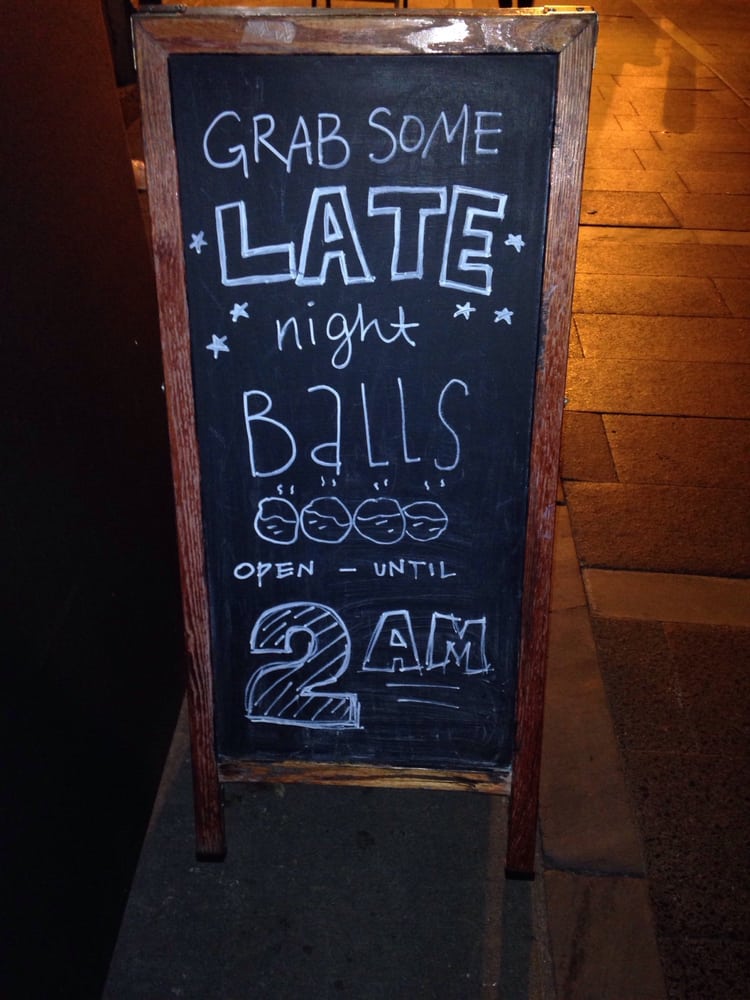 GRAB SOME
LATE
night
BaLLS
OPEN - UNTIL
2 AM